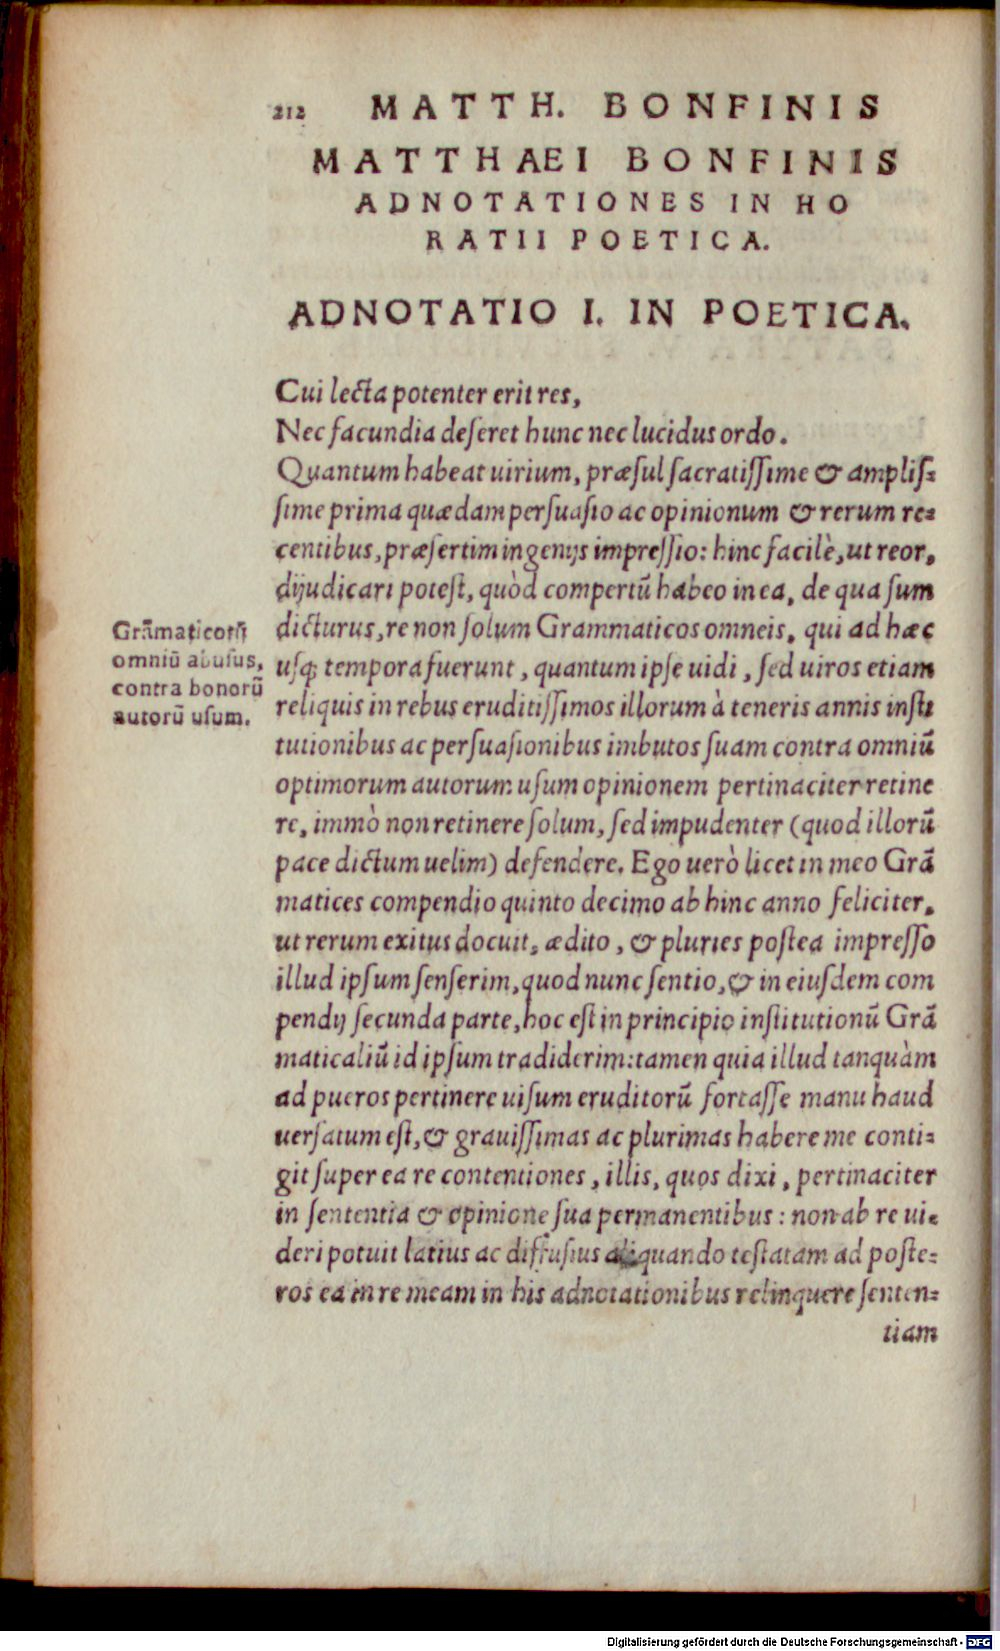 212 MATTH. BONFINIS
MATTHAEI BONFINIS
ADNOTATIONES IN HO
RATII POETICA.
ADNOTATIO I. IN POETICA.
Cui lecta potenter erit res,
Nec facundia deſeret hunc nec lucidus ordo.
Quantum habeat uirium, præſul ſacratiſſime & ampliſ-
ſime prima quædam perſuaſio ac opinionum & rerum re-
centibus, præſertim ingenijs impreſſio: hinc facilè, ut reor,
dijudicari poteſt, quòd compertū habeo in ea, de qua ſum
dicturus, re non ſolum Grammaticos omneis, qui ad hæc
uſq; tempora fuerunt, quantum ipſe uidi, ſed uiros etiam
reliquis in rebus eruditiſſimos illorum à teneris annis inſti
tutionibus ac perſuaſionibus imbutos ſuam contra omniū
optimorum autorum uſum opinionem pertinaciter retine
re, immò non retinere ſolum, ſed impudenter (quod illorū
pace dictum uelim) defendere. Ego uerò licet in meo Grā
matices compendio quinto decimo ab hinc anno feliciter,
ut rerum exitus docuit, ædito, & pluries poſtea impreſſo
illud ipſum ſenſerim, quod nunc ſentio, & in eiuſdem com
pendij ſecunda parte, hoc eſt in principio inſtitutionū Grā
maticaliū id ipſum tradiderim: tamen quia illud tanquàm
ad pueros pertinere uiſum eruditorū fortaſſe manu haud
uerſatum eſt, & grauiſſimas ac plurimas habere me conti-
git ſuper ea re contentiones, illis, quos dixi, pertinaciter
in ſententia & opinione ſua permanentibus: non ab re ui-
deri potuit latius ac diffuſius aliquando teſtatam ad poſte-
ros ea in re meam in his adnotationibus relinquere ſenten-
tiam
Grāmaticorū
omniū abuſus,
contra bonorū
autorū uſum.
Digitalisierung gefördert durch die Deutsche Forschungsgemeinschaft - DFG